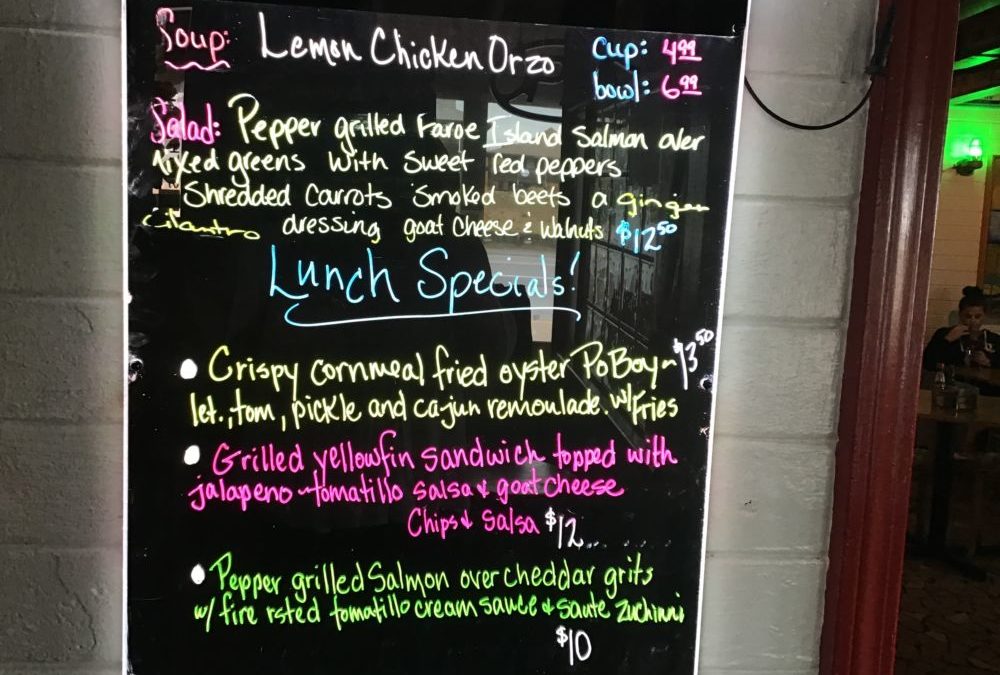 Soup: Lemon Chicken Orzo cup: 4.99
bowl: 6.99
Salad: Pepper grilled Faroe Island Salmon over
Mixed greens with sweet red peppers
Shredded Carrots Smoked beets a ginger
cilantro dressing goat cheese & walnuts $12.50
Lunch Specials!
• Crispy cornmeal fried oyster PoBoy~ $13.50
let., tom, pickle and cajun remoulade. w/ Fries
• Grilled yellowfin sandwich topped with
jalapeno-tomatillo salsa & goat cheese
Chips & Salsa $12
• Pepper grilled Salmon over cheddar grits
w/ fire rsted tomatillo cream sauce & saute zuchinni
$10